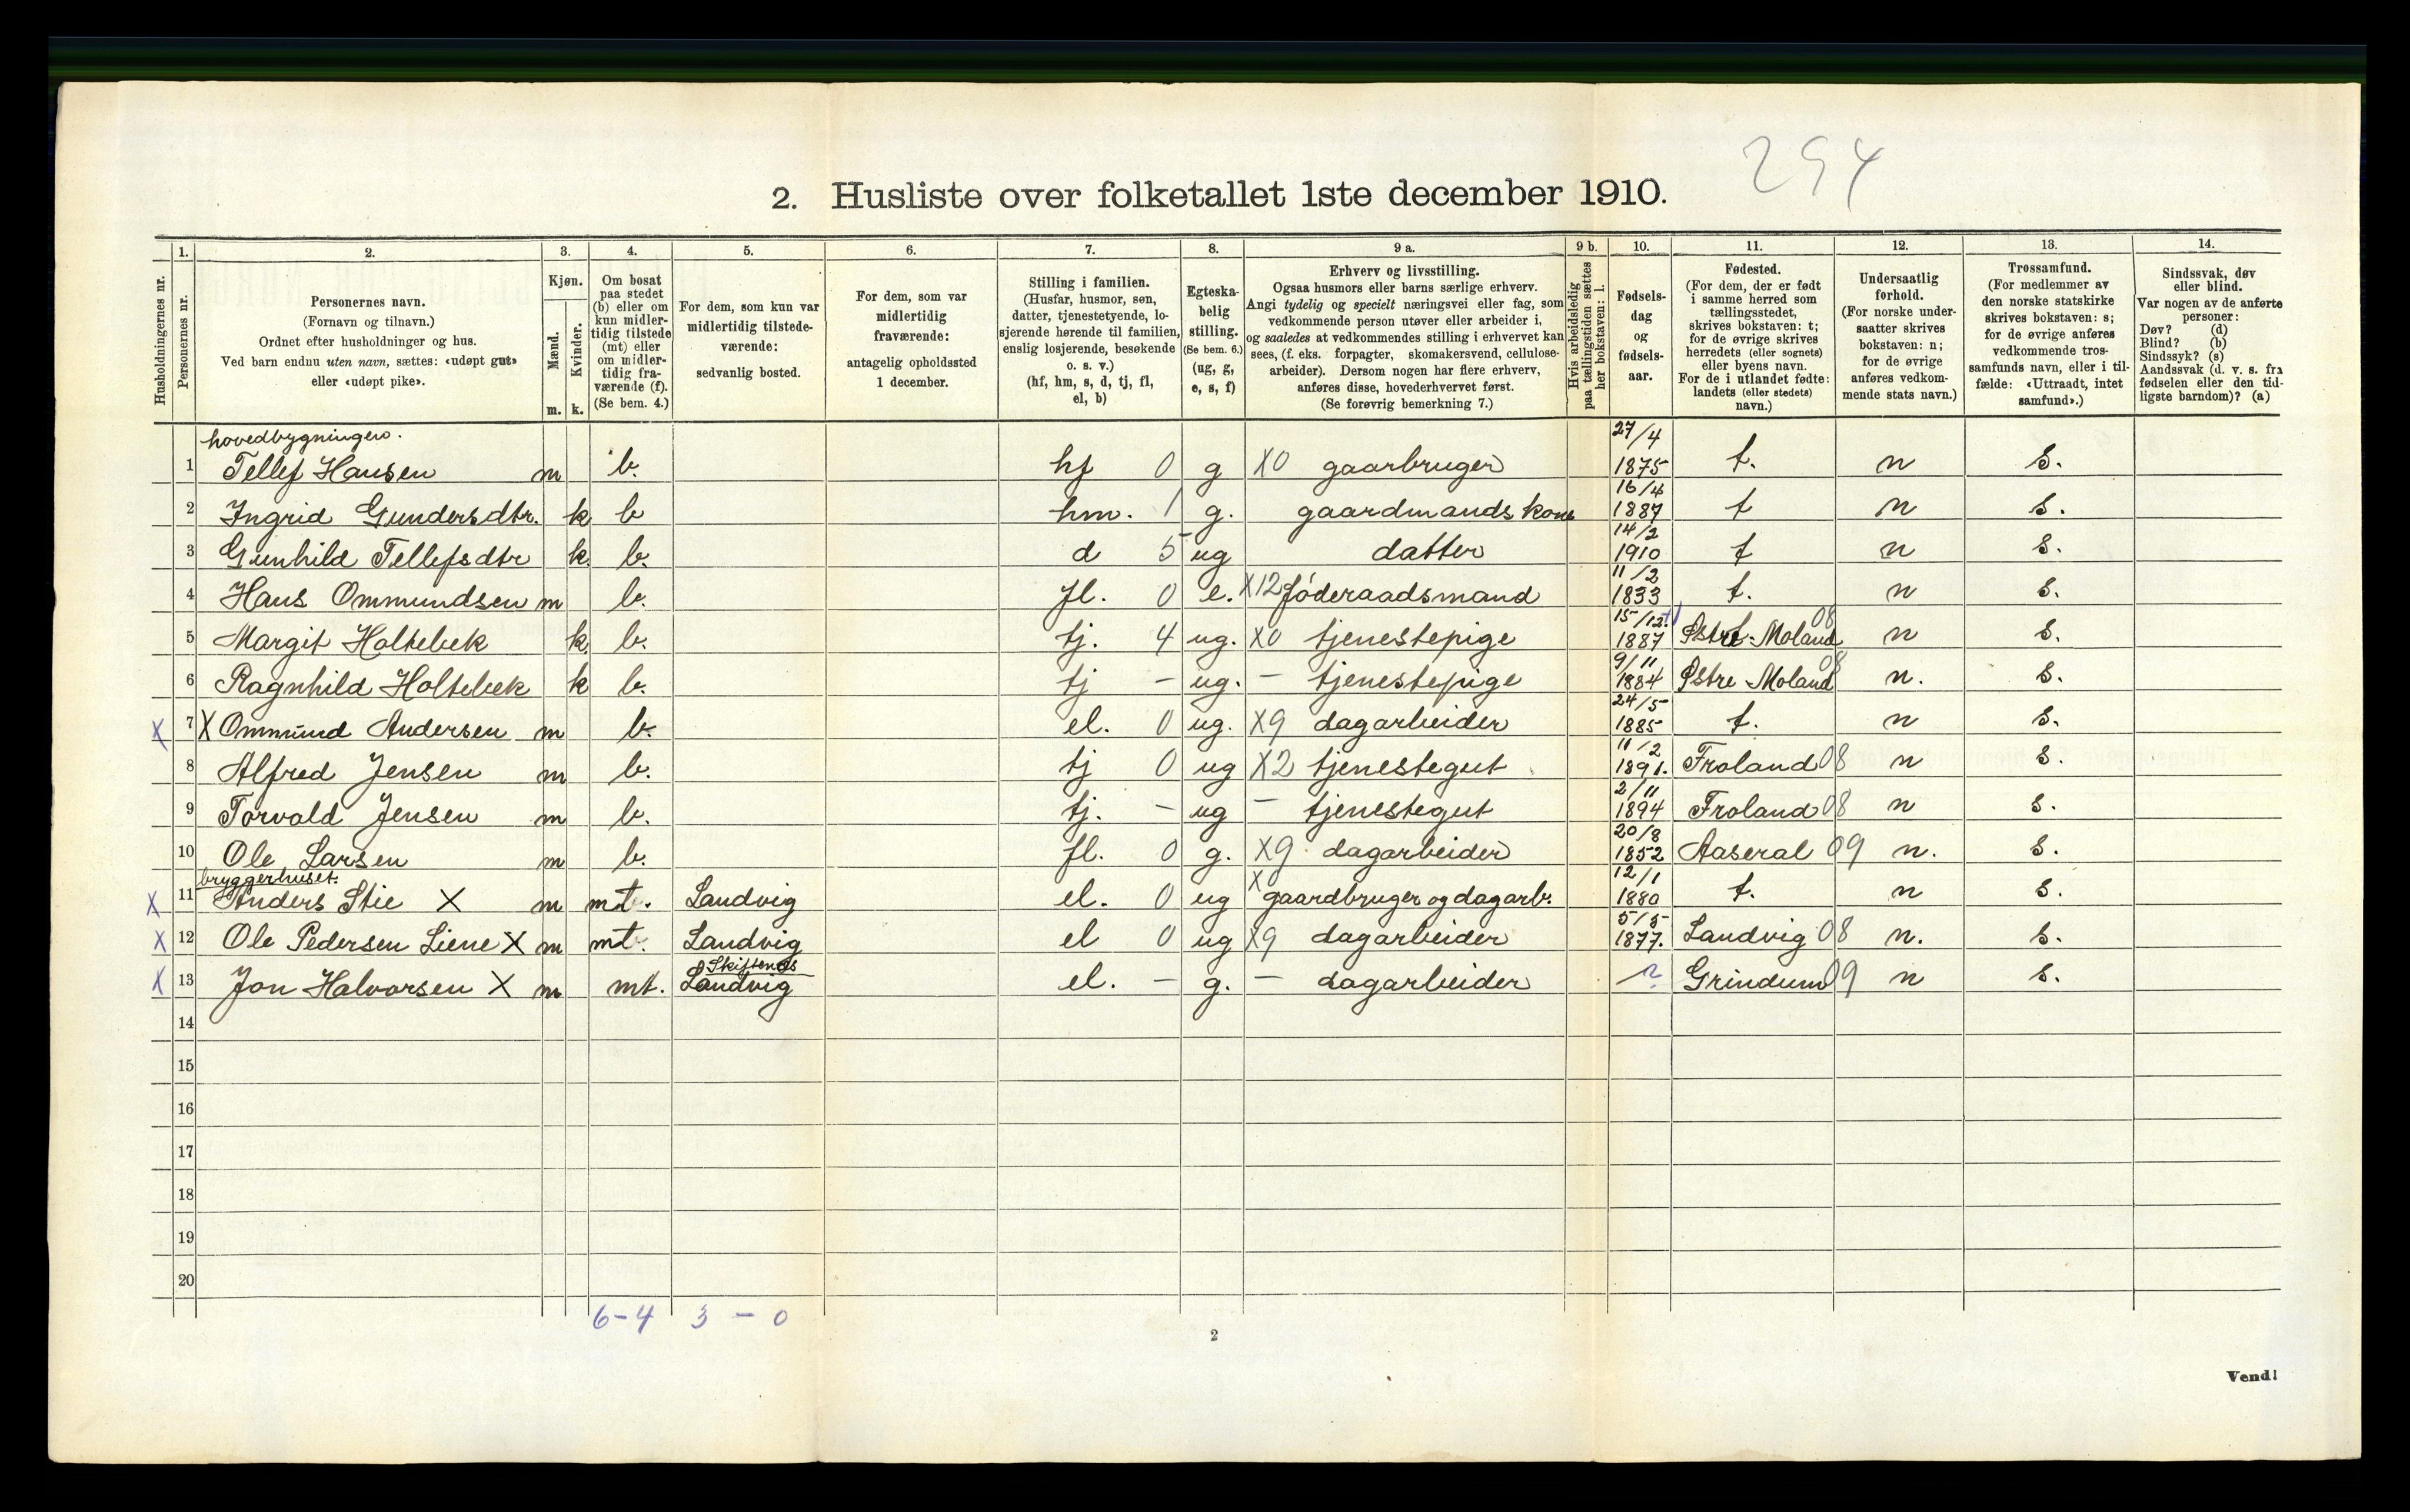 294
2. Husliste over folketallet 1ste december 1910.
Husholdningernes nr.
1.
Personernes nr.
2.
Personernes navn.
(Fornavn og tilnavn.)
Ordnet efter husholdninger og hus.
Ved barn endnu uten navn, sættes: «udøpt gut»
eller «udøpt pike».
3.
Kjøn.
Mænd.
Kvinder.
m. k.
4.
Om bosat
paa stedet
(b) eller om
kun midler-
tidig tilstede
(mt) eller
om midler-
tidig fra-
værende (f).
(Se bem. 4.)
5.
For dem, som kun var
midlertidig tilstede-
værende:
sedvanlig bosted.
6.
For dem, som var
midlertidig
fraværende:
antagelig opholdssted
1 december.
7.
Stilling i familien.
(Husfar, husmor, søn,
datter, tjenestetyende, lo-
sjerende hørende til familien,
enslig losjerende, besøkende
o. s. v.)
(hf, hm, s, d, tj, fl,
el, b)
8.
Egteska-
belig
stilling.
(Se bem. 6.)
(ug, g,
e, s, f)
9 a.
Erhverv og livsstilling.
Ogsaa husmors eller barns særlige erhverv.
Angi tydelig og specielt næringsvei eller fag, som
vedkommende person utøver eller arbeider i,
og saaledes at vedkommendes stilling i erhvervet kan
sees, (f. eks. forpagter, skomakersvend, cellulose-
arbeider). Dersom nogen har flere erhverv,
anføres disse, hovederhvervet først.
(Se forøvrig bemerkning 7.)
9 b.
Hvis arbeidsledig
paa tællingstiden sættes
her bokstaven: l.
10.
Fødsels-
dag
og
fødsels-
aar.
11.
Fødested.
(For dem, der er født
i samme herred som
tællingsstedet,
skrives bokstaven: t;
for de øvrige skrives
herredets (eller sognets)
eller byens navn.
For de i utlandet fødte:
landets (eller stedets)
navn.)
12.
Undersaatlig
forhold.
(For norske under-
saatter skrives
bokstaven: n;
for de øvrige
anføres vedkom-
mende stats navn.)
13.
Trossamfund.
(For medlemmer av
den norske statskirke
skrives bokstaven: s;
for de øvrige anføres
vedkommende tros-
samfunds navn, eller i til-
fælde: «Uttraadt, intet
samfund».)
14.
Sindssvak, døv
eller blind.
Var nogen av de anførte
personer:
Døv? (d)
Blind? (b)
Sindssyk? (s)
Aandssvak (d. v. s. fra
fødselen eller den tid-
ligste barndom)? (a)
hovedbygningen.
1 Tellef Hansen m b. hf 0 g X0 gaarbruger 27/4 1875 t. n s.
2 Ingrid Gundersdtr. k b hm. 1 g. gaardmands kone 16/4 1887 t n s.
3 Gunhild Tellefsdtr k. b. d 5 ug datter 14/2 1910 t n s.
4 Hans Ommundsen m b. fl. 0 e. X12 føderaadsmand 11/2 1833 t. n s.
5 Margit Holtebek k. b. tj. 4 ug. X0 tjenestepige 15/12 1887 Østre Moland 08 n s.
6 Ragnhild Holtebek k b. tj - ug. - tjenestepige 9/11 1884 Østre Moland 08 n. s.
X 7 X Ommund Andersen m b. el. 0 ug. X9 dagarbeider 24/5 1885 t. n s.
8 Alfred Jensen m b. tj 0 ug X2 tjenestegut 11/2 1891. Froland 08 n s.
9 Torvald Jensen m b. tj. - ug - tjenestegut 2/11 1894 Froland 08 n s.
10 Ole Larsen m b. fl. 0 g. X9 dagarbeider 20/8 1852 Aaseral 09 n. s.
bryggerhuset.
X 11 Anders Stie X m mt. Landvig el. 0 ug X gaardbruger og dagarb. 12/1 1880 t. n s.
X 12 Ole Pedersen Liene X m mt. Landvig el 0 ug X9 dagarbeider 5/5 1877. Landvig 08 n. s.
Skiftenes
X 13 Jon Halvorsen X m mt. Landvig el. - g. - dagarbeider ? Grindum 09 n s.
14
15
16
17
18
19
20
6-4 3 - 0
2
Vend!